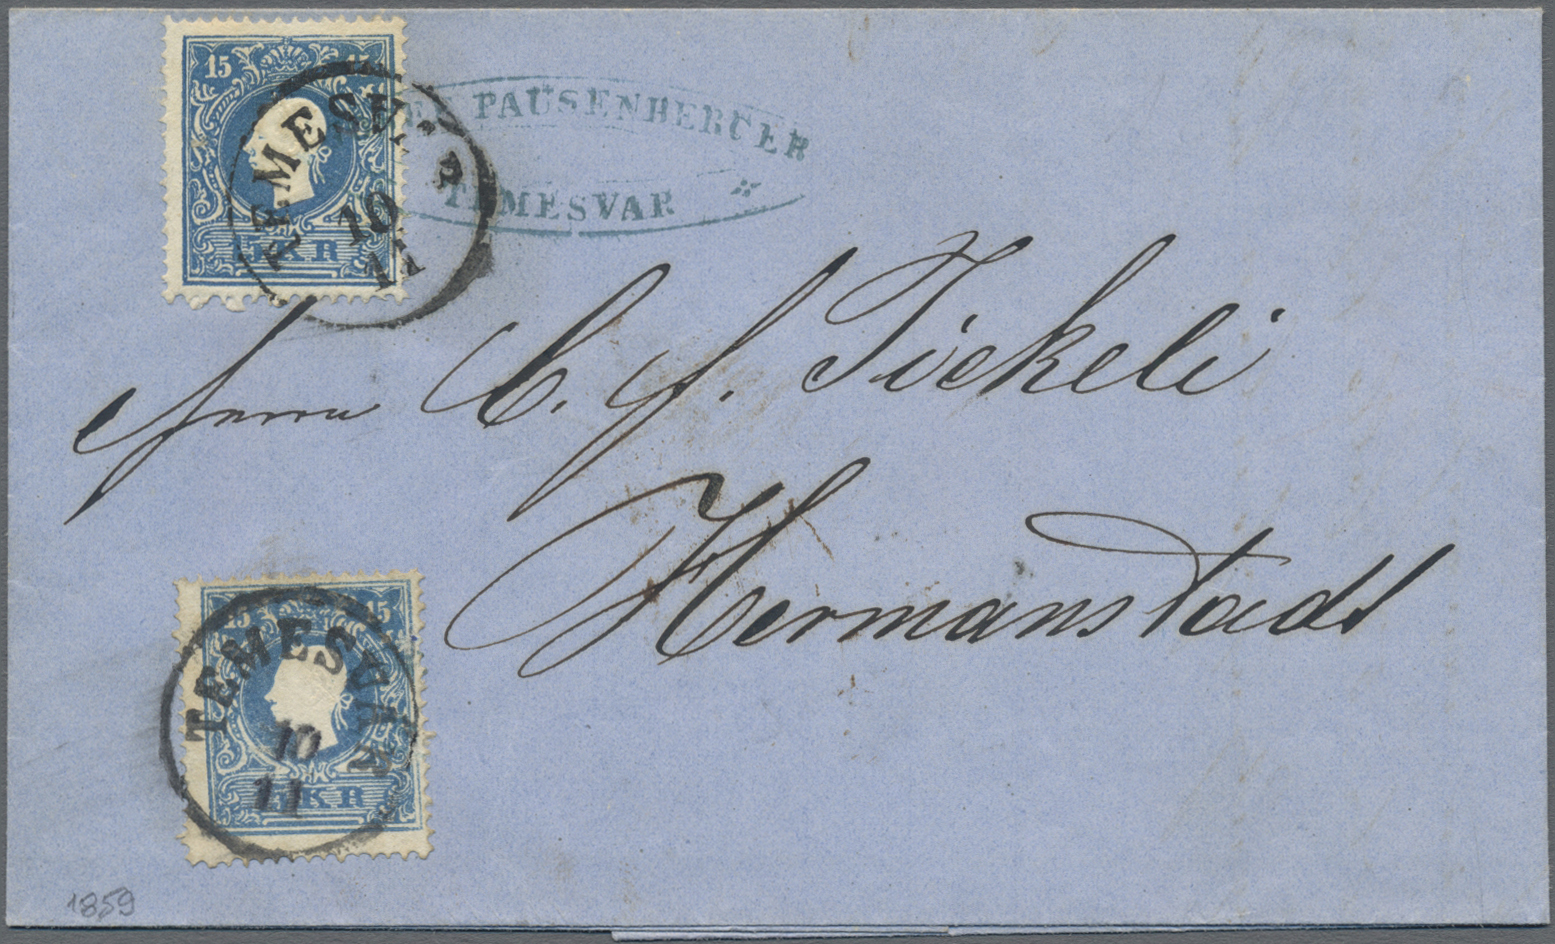 15
PAUSENBERGER
TEMESVAR
TEMESVAR
10
11
15 KR
Herrn C. F. Jickeli
Hermanstadt
15 15
TEMESVAR
10
11
15 KR
1859